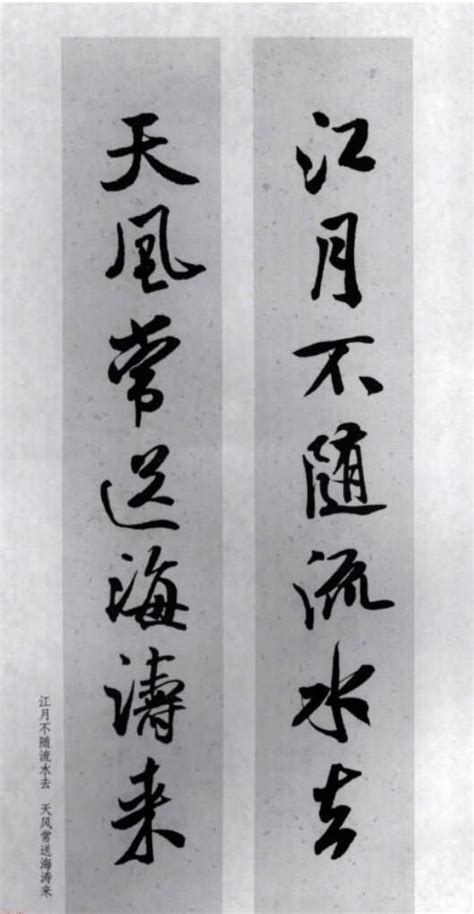 江月不随流水去
天風常送海濤来
江月不随流水去　天风常送海涛来